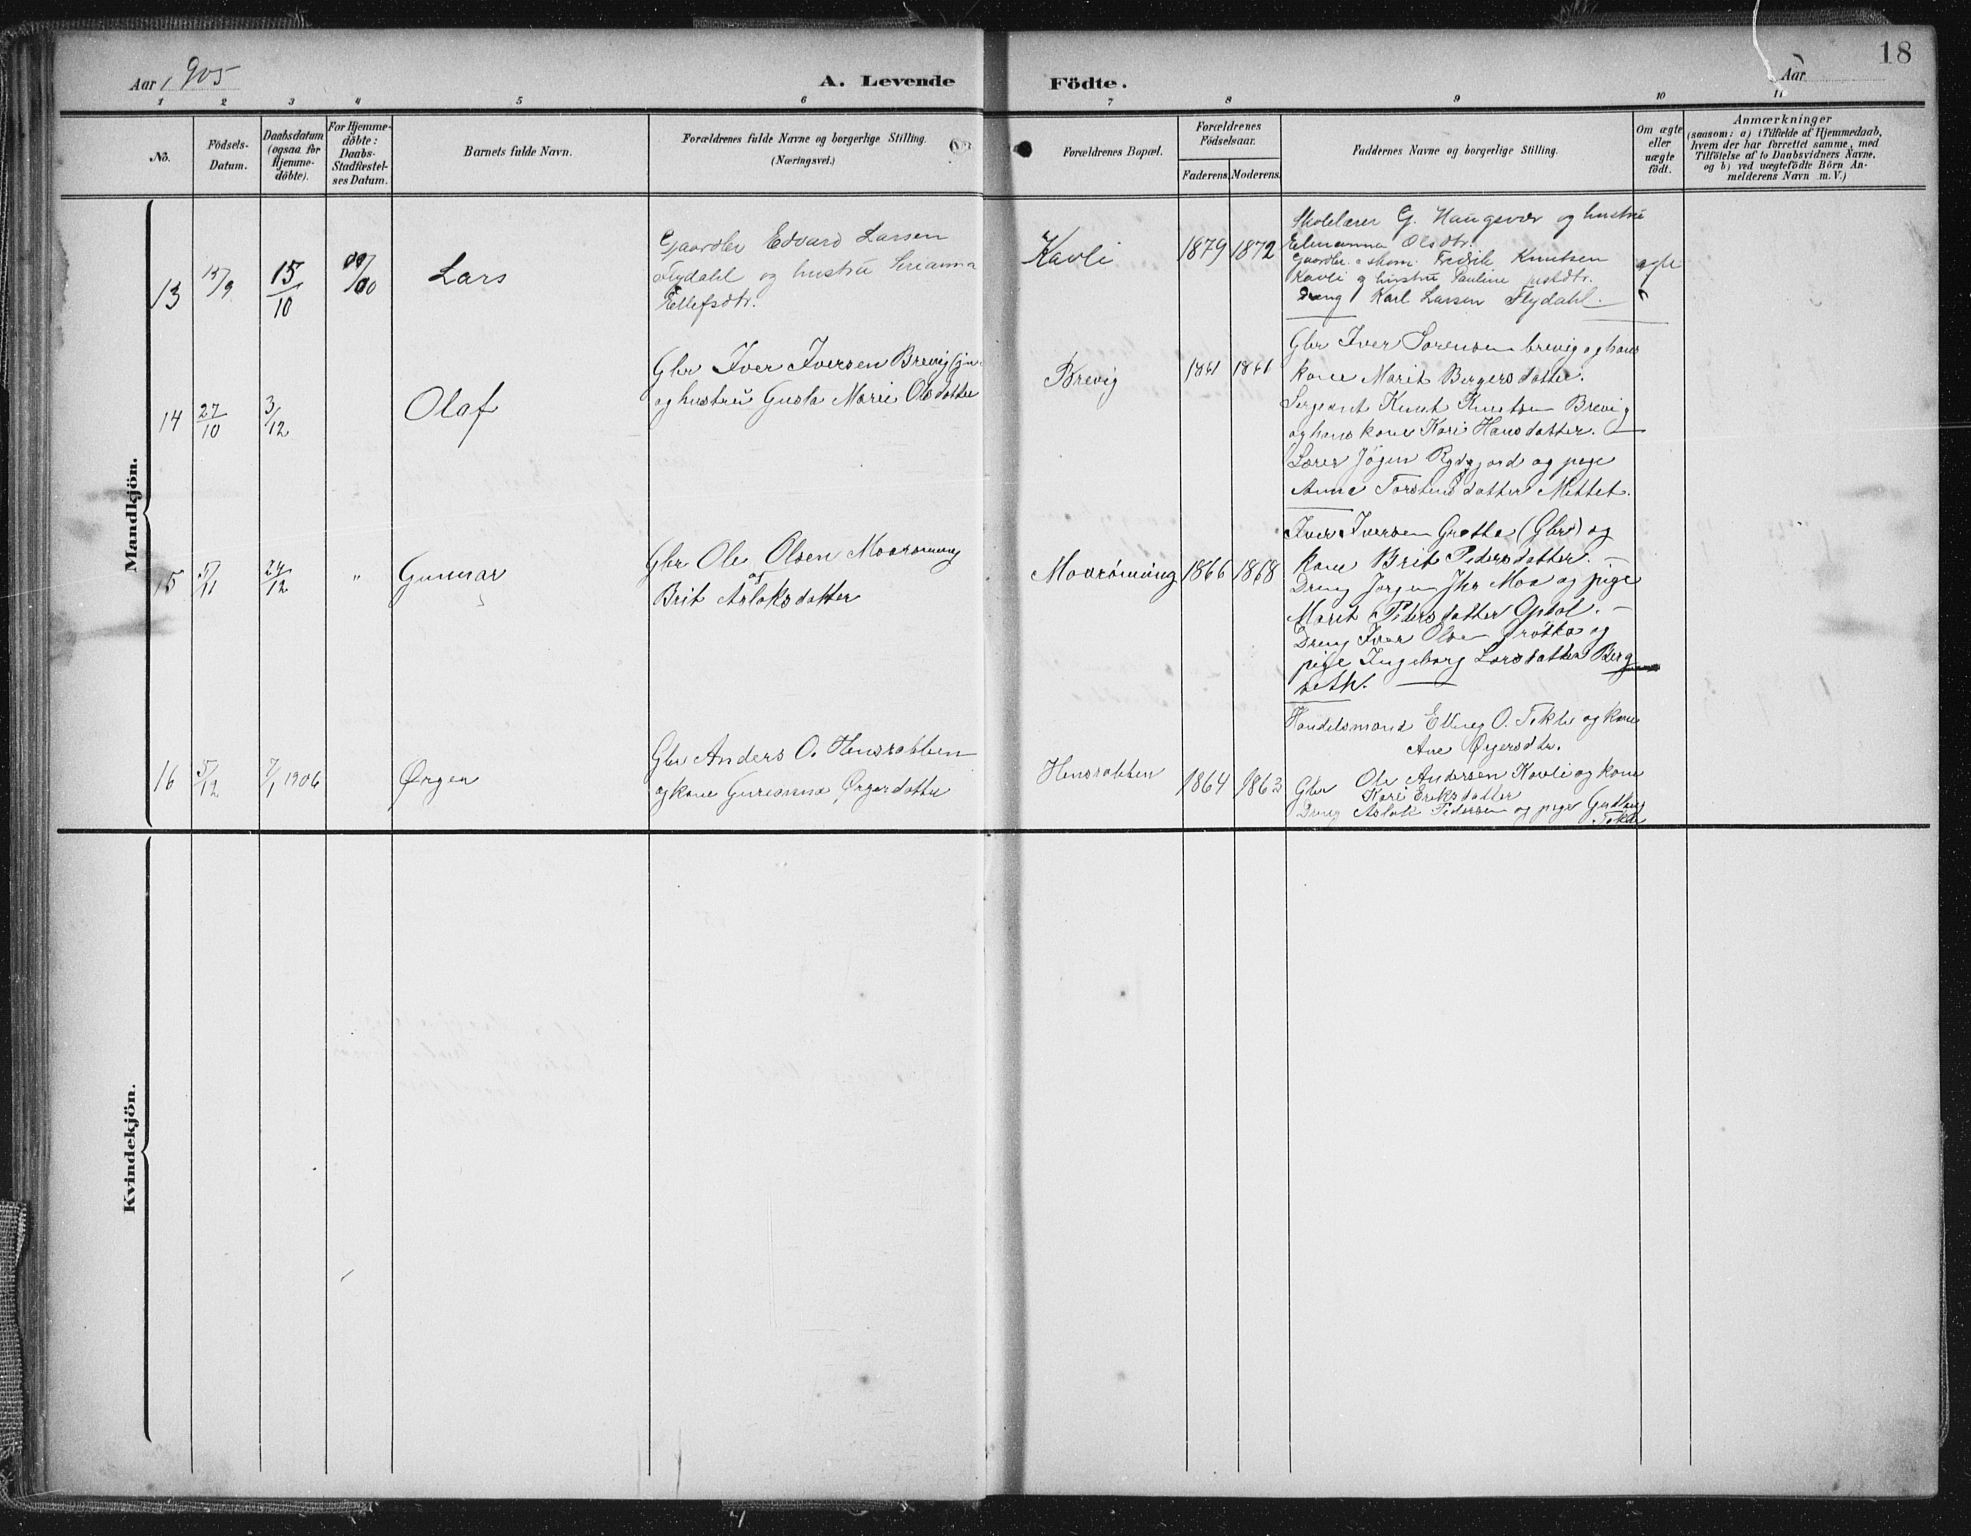 Aar 1905
A. Levende Födte.
Aar
18
1 2 3 4 5 6 7 8 9 10 11
No.
Födsels-
Datum.
Daabsdatum
(ogsaa for
Hjemme-
döbte).
For Hjemme-
döbte:
Daabs-
Stadfæstel-
ses Datum.
Barnets fulde Navn.
Forældrenes fulde Navne og borgerlige Stilling.
(Næringsvei.)
Forældrenes Bopæl.
Forældrenes
Födselsaar.
Faderens. Moderens.
Faddernes Navne og borgerlige Stilling.
Om ægte
eller
uægte
födt.
Anmærkninger
(saasom: a) i Tilfælde af Hjemmedaab,
hvem der har forrettet samme, med
Tilföielse af to Daabsvidners Navne,
og b) ved uægtefödte Börn An-
melderens Navn m. V.)
Mandkjön.
13
15/9
15/10
Lars
Gaardbr Edvard Larsen
Flydahl og hustru Serianna
Ellefsdtr.
Kavli
1879
1872
Skolelærer G. Haugsvær og hustru
Elenanna Olsdtr.
Gaardbr. Fredrik Knutsen
Kavli og hustru Pauline
Dreng Karl Larsen Flydahl.
ægte
14
27/10
3/12
Olaf
Gbr Iver Iversen Brevig
og hustru Gusta Marie Olsdatter
Brevig
1861
1861
Gbr Iver Sørensen brevig og hans
kone Marit Bergersdatter.
Sergeant Knut Knutsen Brevig
og hans kone Kari Hansdatter.
Lærer Jøgen Rydgjord og pige
Anne Torstensdatter Mittet.
15
5/11
24/12
"
Gunnar
Gbr Ole Olsen Moarøming
og
Brit Aslaksdatter
Moarøming
1866
1868
Iver Iversen Grøtta (Gbr) og
kone Brit Pedersdatter. –
Dreng Jørgen Jhs Moa og pige
Marit Pedersdatter Opdol. –
Dreng Iver Olsen Grøtta og
pige Ingeborg Larsdatter Berg
seth.
16
5/12
7/1 1906
Ørgen
Gbr Anders O. Hensrabben
og kone Gurianna Ørgersdatter
Hensrabben
1864
1863
Handelsmand Elling O. Tokle og kone
Ane Ørgersdtr.
Gbr Ole Andersen Kavli og kone
Kari Eriksdatter
Dreng Aslak Pedersen og pige Gudborg
Tokle
Kvindekjön.